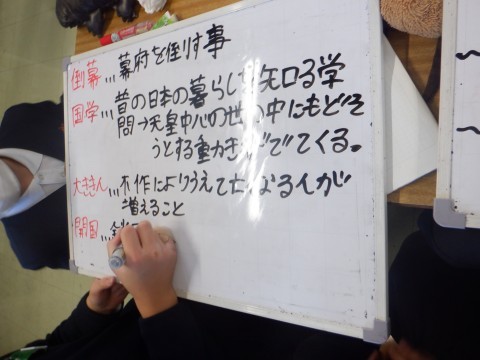 倒幕…幕府を倒す事
国学…昔の日本の暮らしを知る学
問→天皇中心の世の中にもどそ
うとする動きがでてくる。
大ききん…不作によりうえて亡くなる人が
増えること
開国…鎖